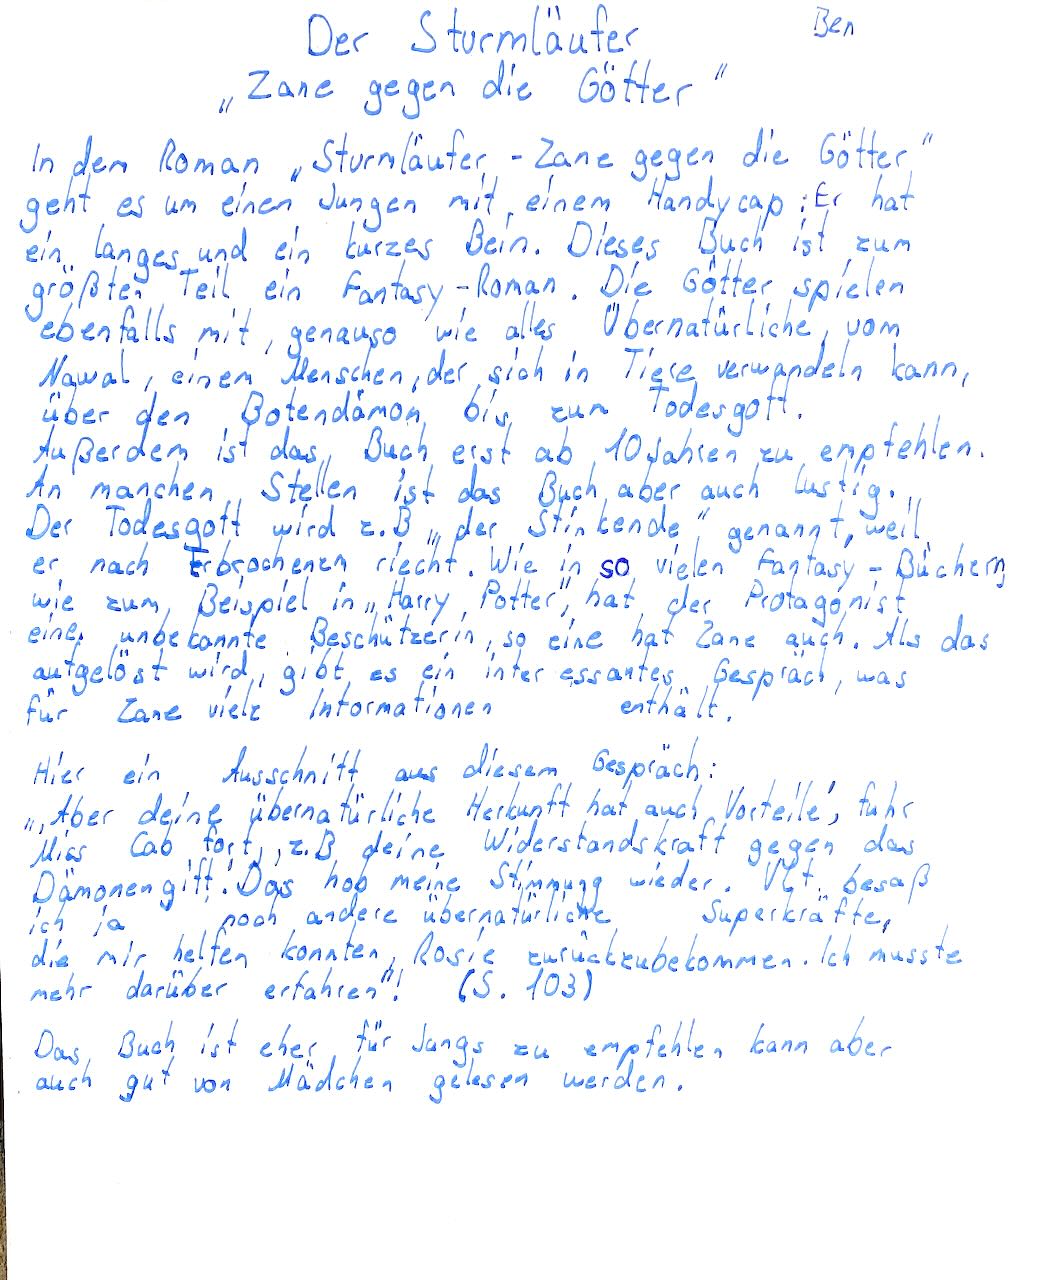 Der Sturmläufer
Ben
„Zane gegen die Götter"
In dem Roman „Sturmläufer - Zane gegen die Götter"
geht es um einen Jungen mit einem Handycap: Er hat
ein langes und ein kurzes Bein. Dieses Buch ist zum
größten Teil ein Fantasy-Roman. Die Götter spielen
ebenfalls mit, genauso wie alles Übernatürliche, vom
Nawal, einem Menschen, der sich in Tiere verwandeln kann,
über den Botendämon bis zum Todesgott.
Außerdem ist das Buch erst ab 10 Jahren zu empfehlen.
An manchen Stellen ist das Buch aber auch lustig.
Der Todesgott wird z.B „der Stinkende" genannt, weil
er nach Erbrochenem riecht. Wie in so vielen Fantasy-Büchern
wie zum Beispiel in „Harry Potter", hat der Protagonist
eine unbekannte Beschützerin, so eine hat Zane auch. Als das
aufgelöst wird, gibt es ein interessantes Gespräch, was
für Zane viele Informationen enthält.
Hier ein Ausschnitt aus diesem Gespräch:
„‚Aber deine übernatürliche Herkunft hat auch Vorteile', fuhr
Miss Cab fort, ‚z.B deine Widerstandskraft gegen das
Dämonengift.' Das hob meine Stimmung wieder. Vlt. besaß
ich ja noch andere übernatürliche Superkräfte,
die mir helfen konnten, Rosie zurückzubekommen. Ich musste
mehr darüber erfahren"! (S. 103)
Das Buch ist eher für Jungs zu empfehlen kann aber
auch gut von Mädchen gelesen werden.